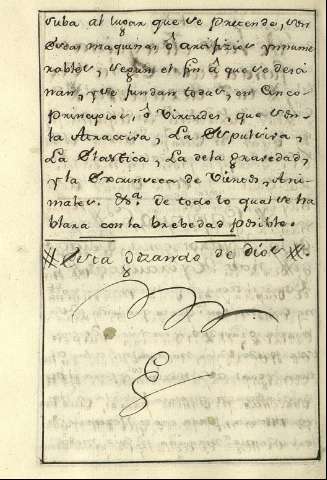 suba al lugar que se pretende, son
estas maquinas, ô artifizios ynnume
rables, segun el fin â que se desti
nan, y se fundan todas, en Cinco
Principios, ô Virtudes, que son
la Atractiva, La Expulsiva,
La Elastica, La de la gravedad,
y la Extrinseca de Vientos, Ani
males. &ª. de todo lo qual se ha
blara con la brebedad posible.
esta
de dios